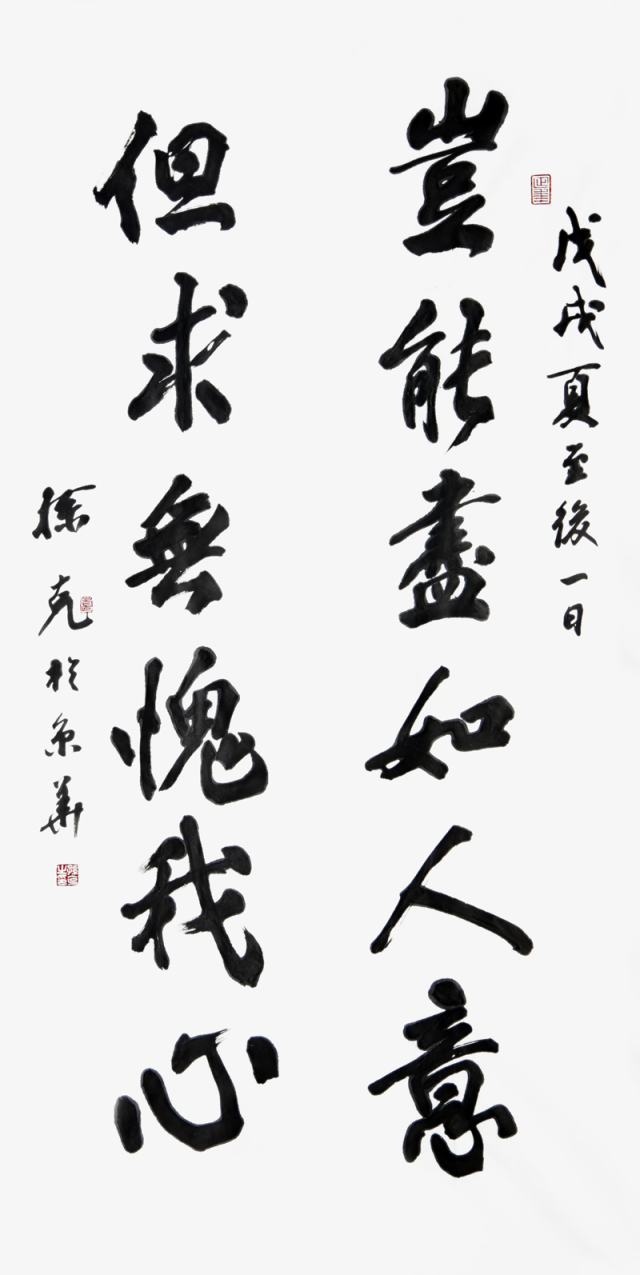 戊戌夏至後一日
豈能盡如人意
但求無愧我心
徐克於京華